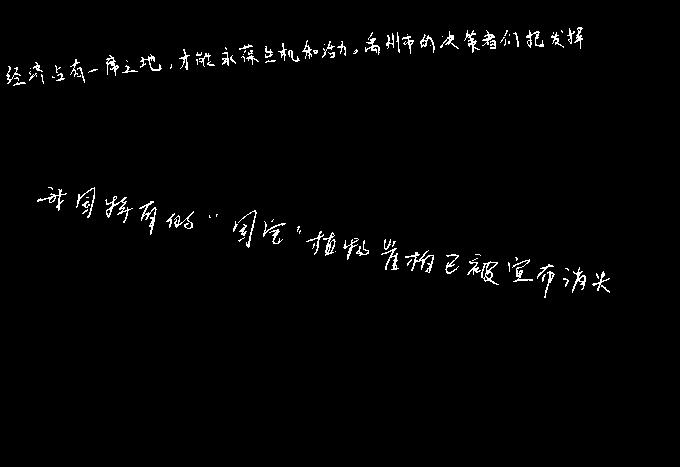 经济占有一席之地，才能永葆生机和活力。禹州市的决策者们把发挥
我国特有的“国宝”植物崖柏已被宣布消失